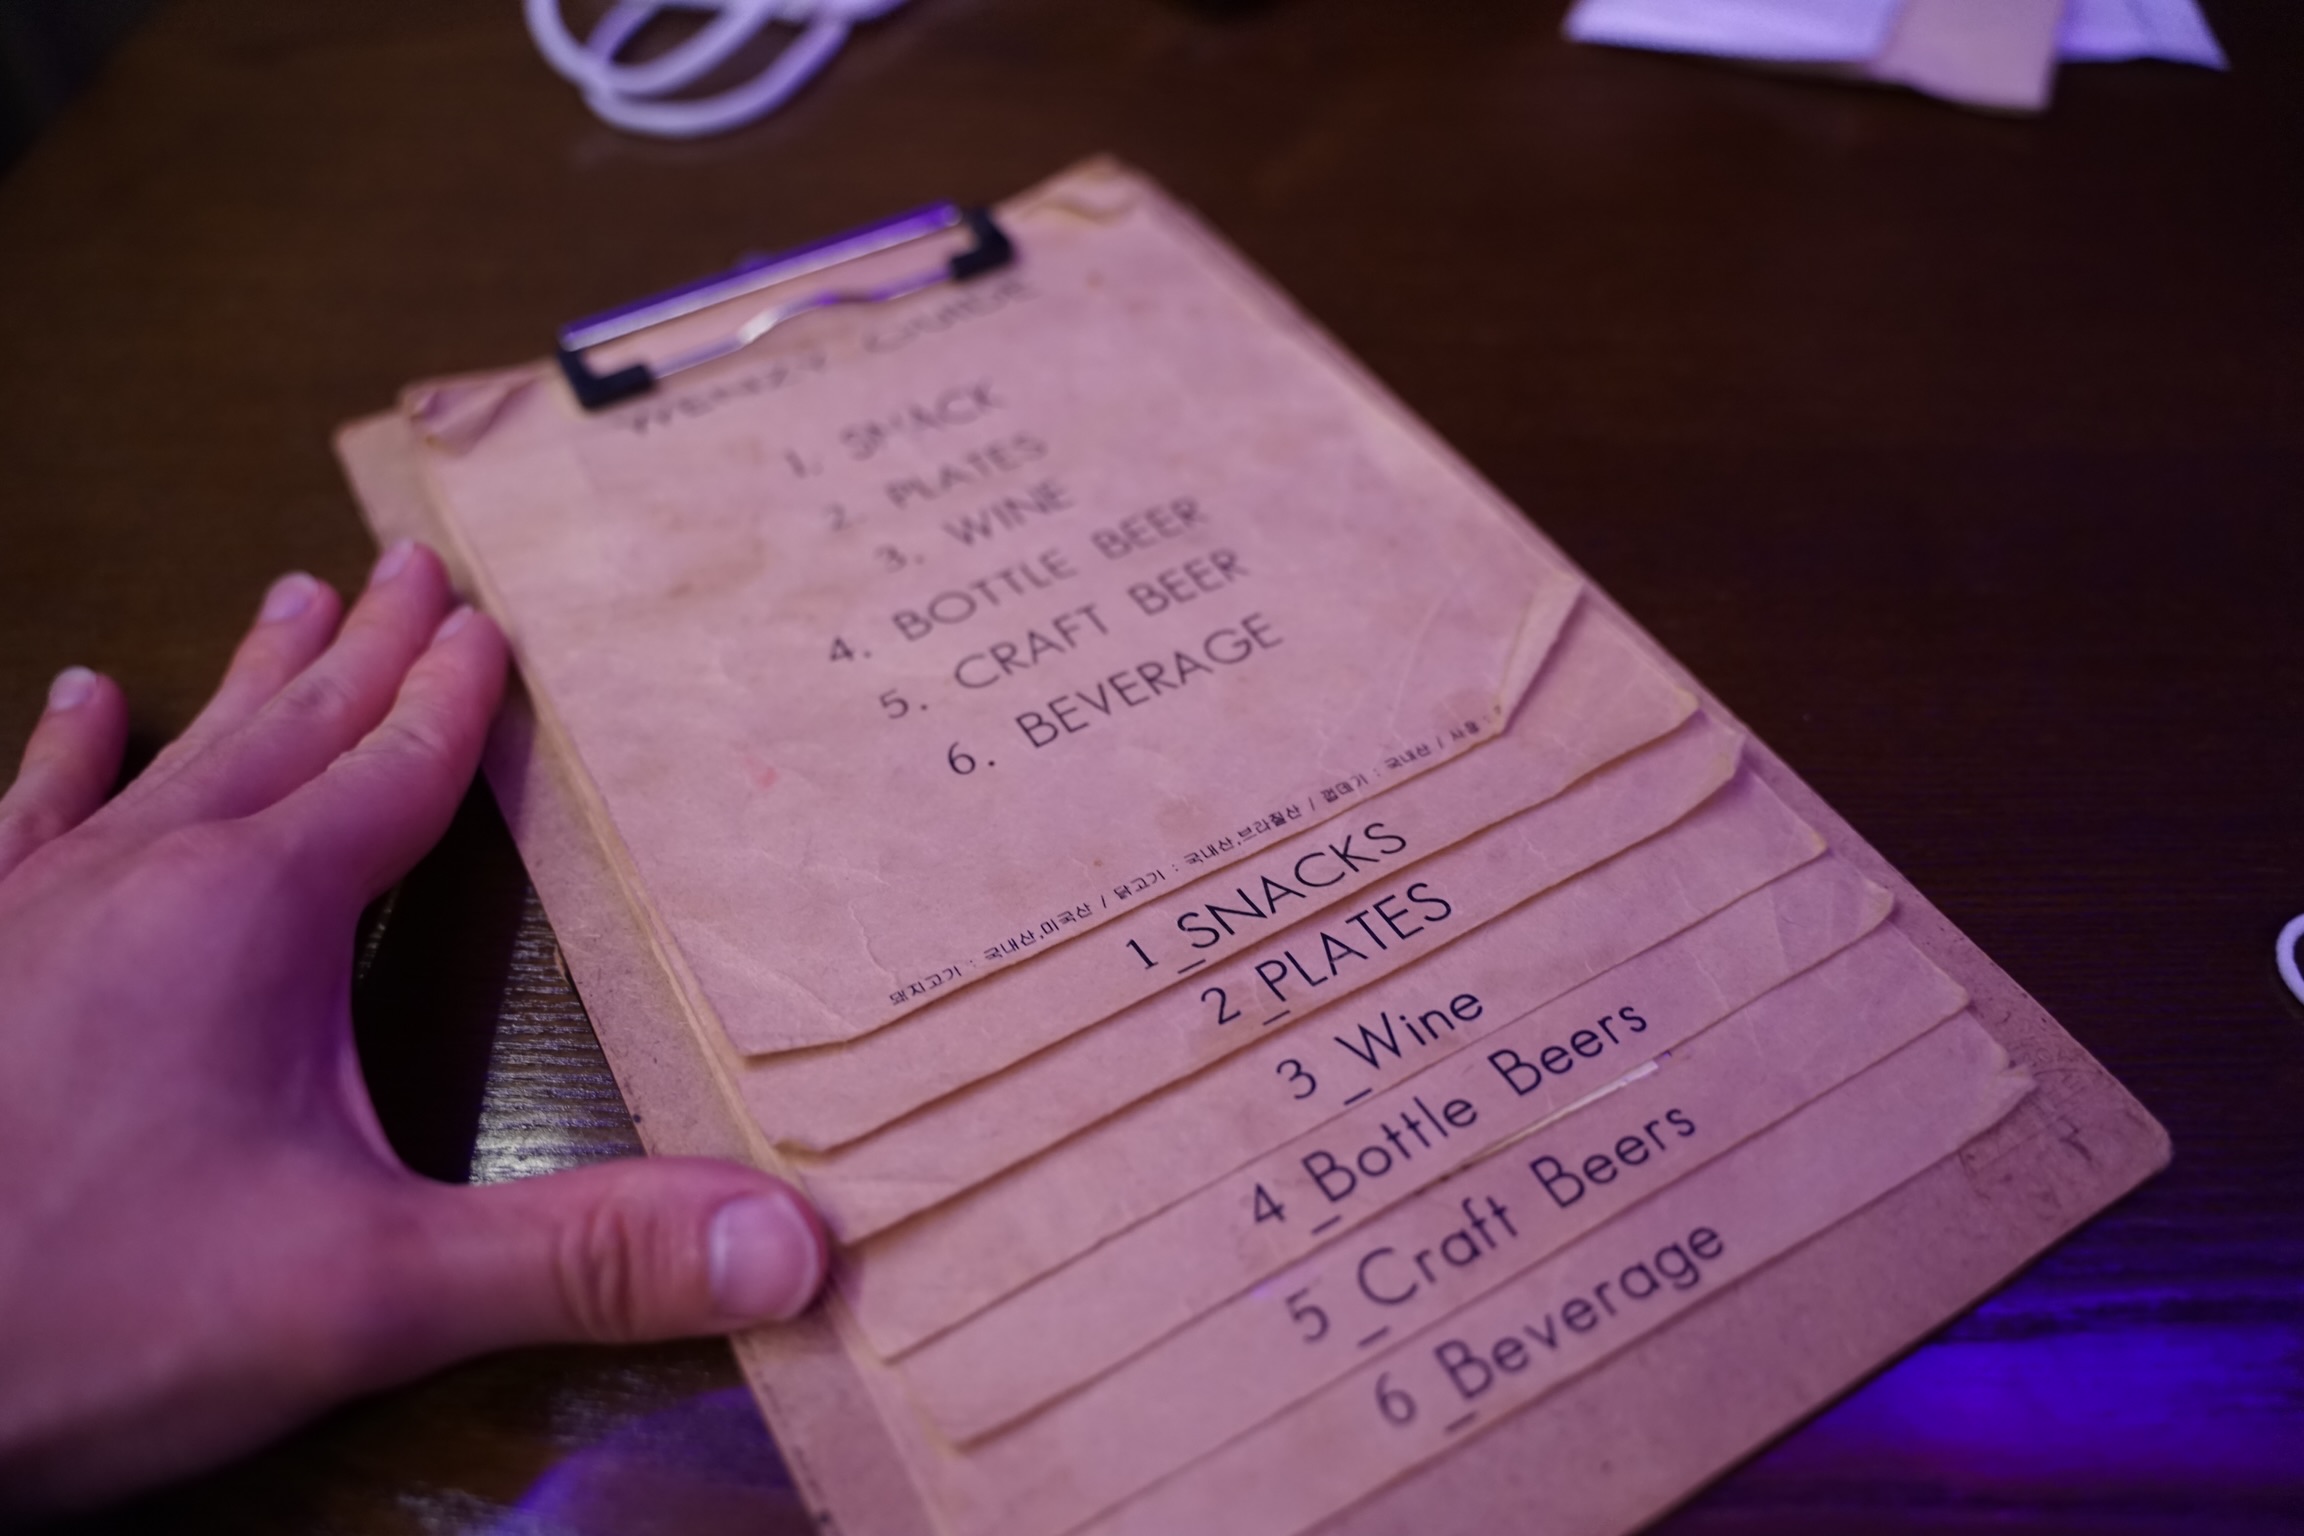 GUIDE
1. SNACK
2. PLATES
3. WINE
4. BOTTLE BEER
5. CRAFT BEER
6. BEVERAGE
돼지고기 : 국내산,미국산 / 닭고기 : 국내산,브라질산 / 껍데기 : 국내산 / 사골 :
1_SNACKS
2_PLATES
3_Wine
4_Bottle Beers
5_Craft Beers
6_Beverage